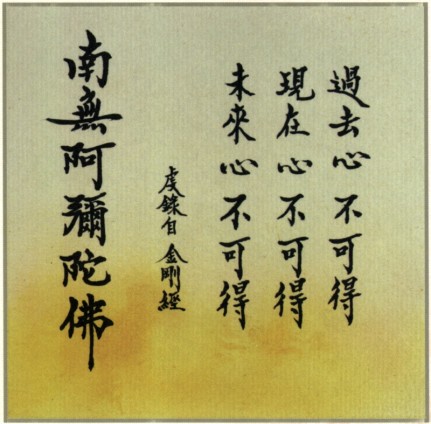 過去心不可得
現在心不可得
未來心不可得
虔錄自金剛經
南無阿彌陀佛